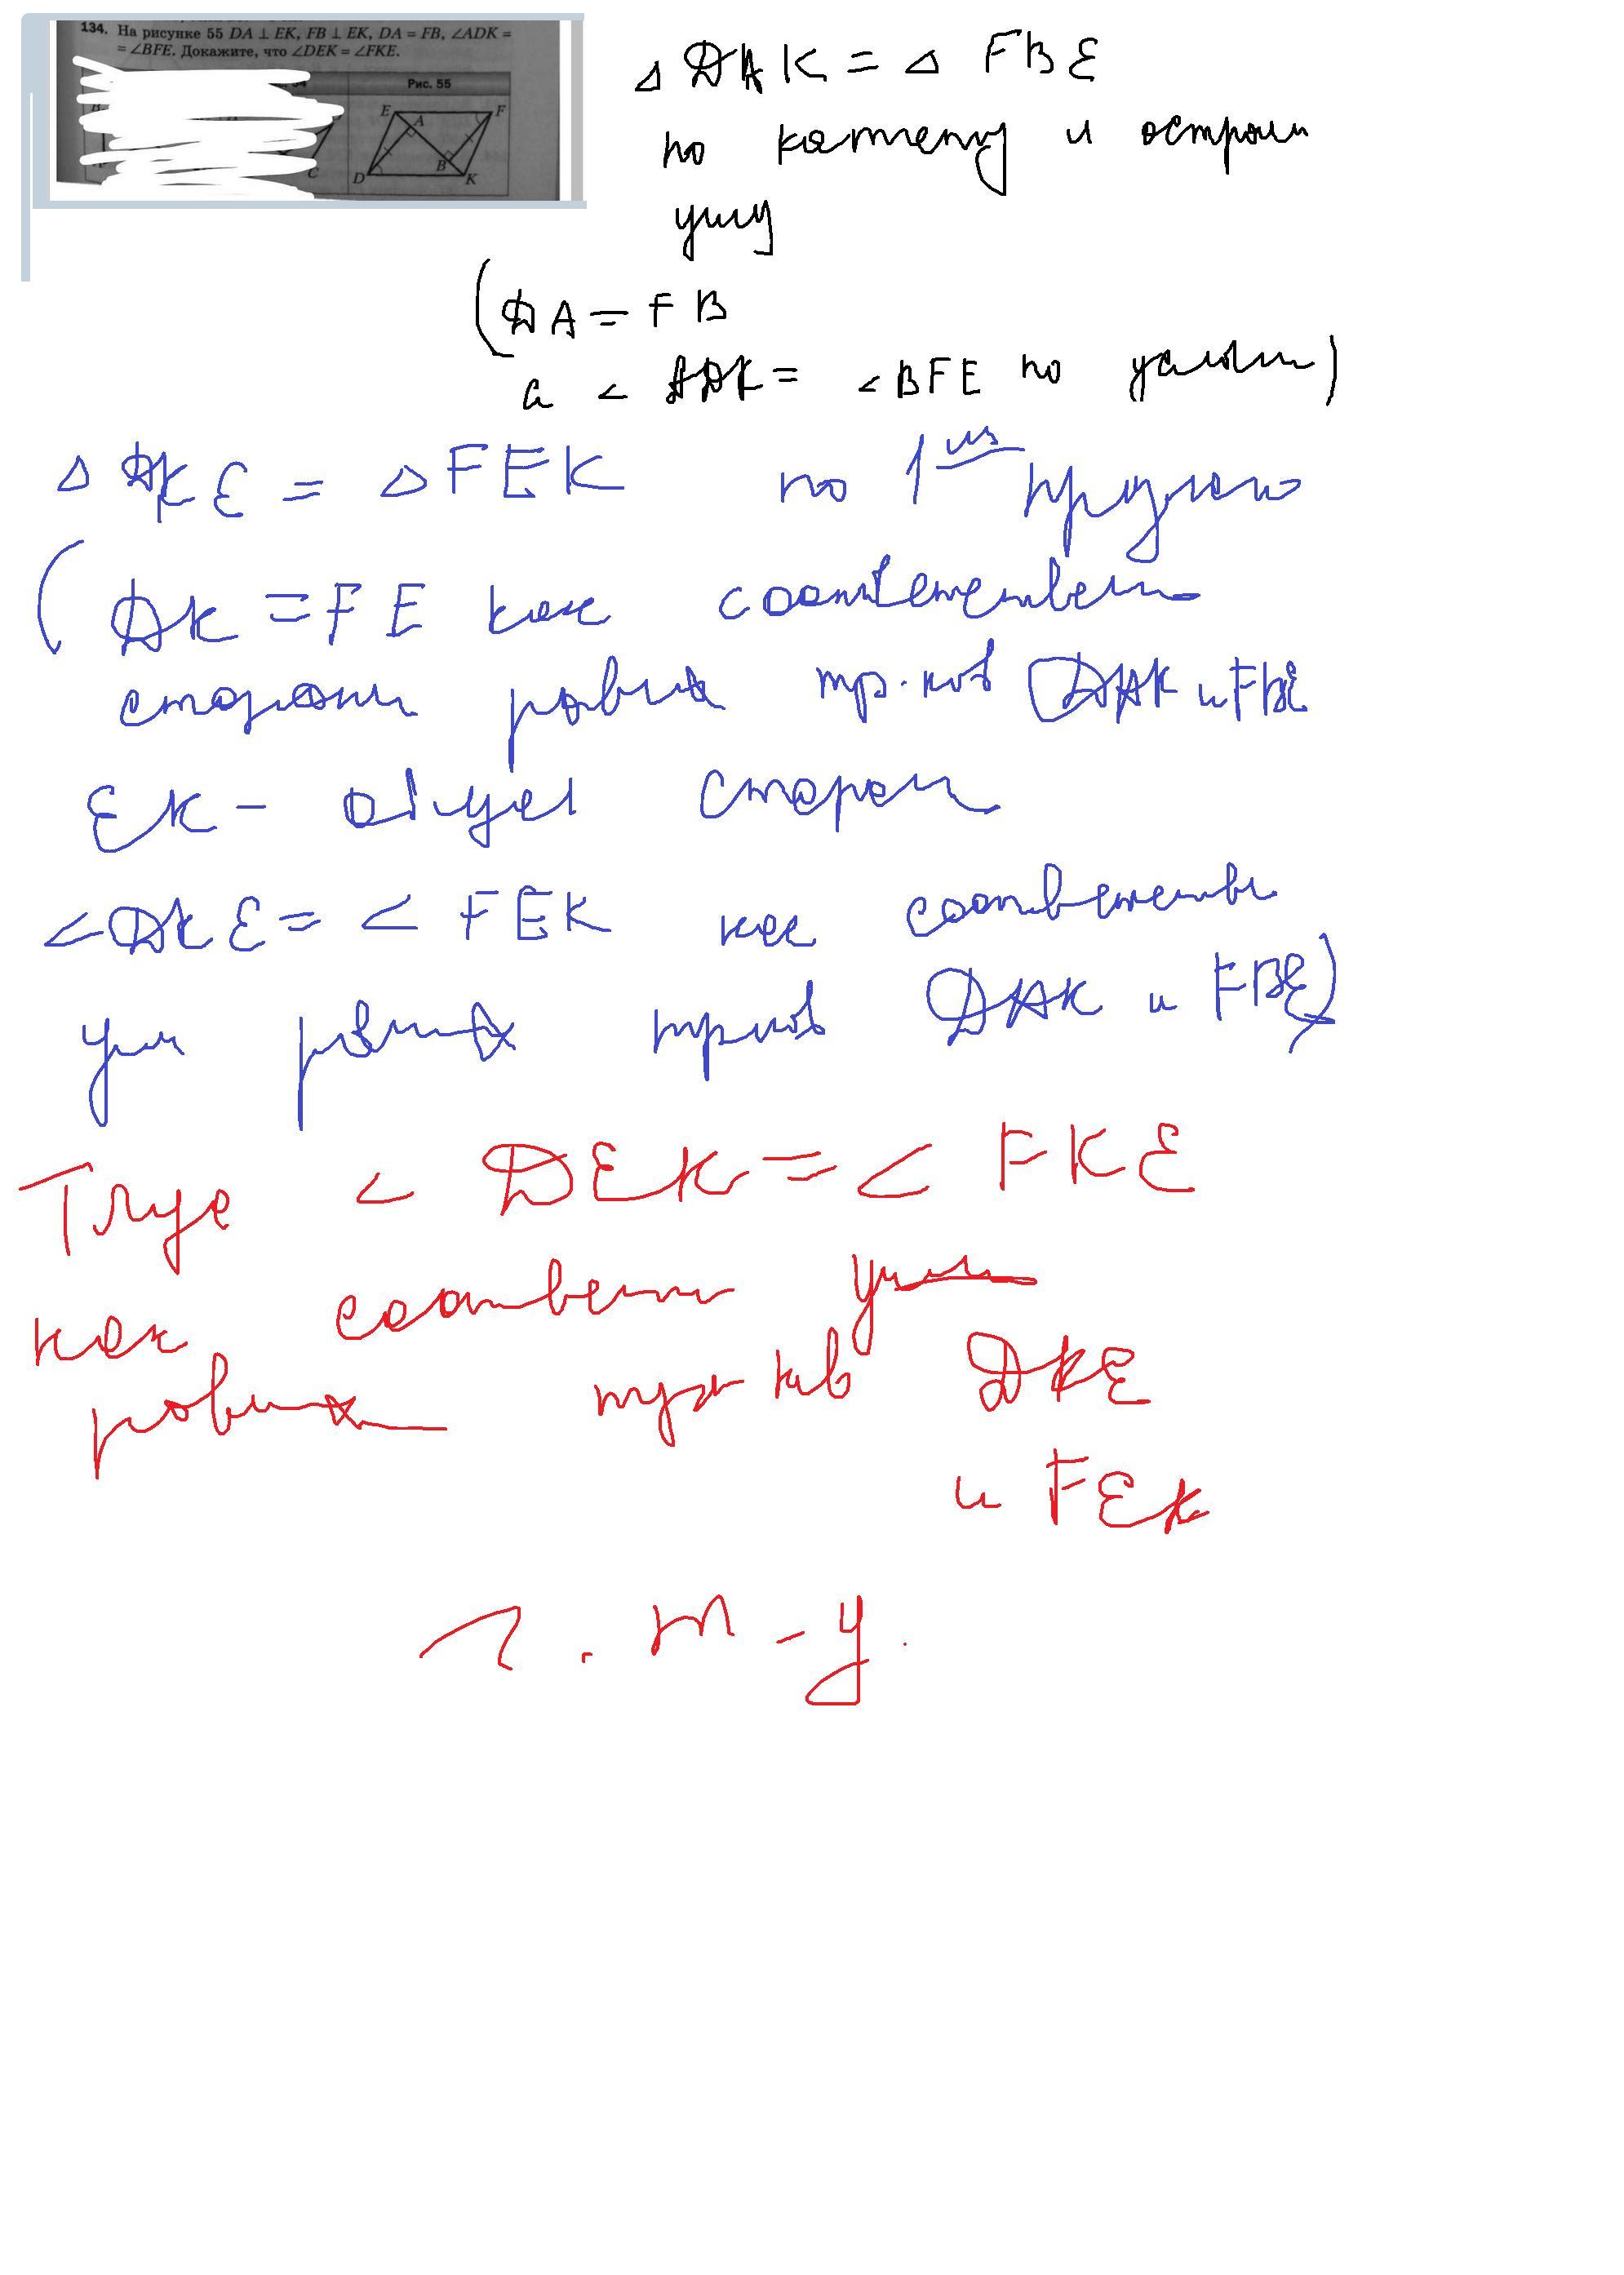 134. На рисунке 55 DA ⊥ EK, FB ⊥ EK, DA = FB, ∠ADK =
= ∠BFE. Докажите, что ∠DEK = ∠FKE.
Рис. 55
E A F
D B K
C
△ DAK = △ FBE
по катету и остром
углу
(DA = FB
а ∠ ADK = ∠BFE по услов)
△ DKE = △ FEK по 1
(DK = FE как соответствен
сторон равных тр-ков DAK и FBE
EK - общая сторон
∠DKE = ∠ FEK как соответств
угл равных тр-ков DAK и FBE)
Тогда ∠ DEK = ∠ FKE
как соответ углы
равных тр-ков DKE
и FEK